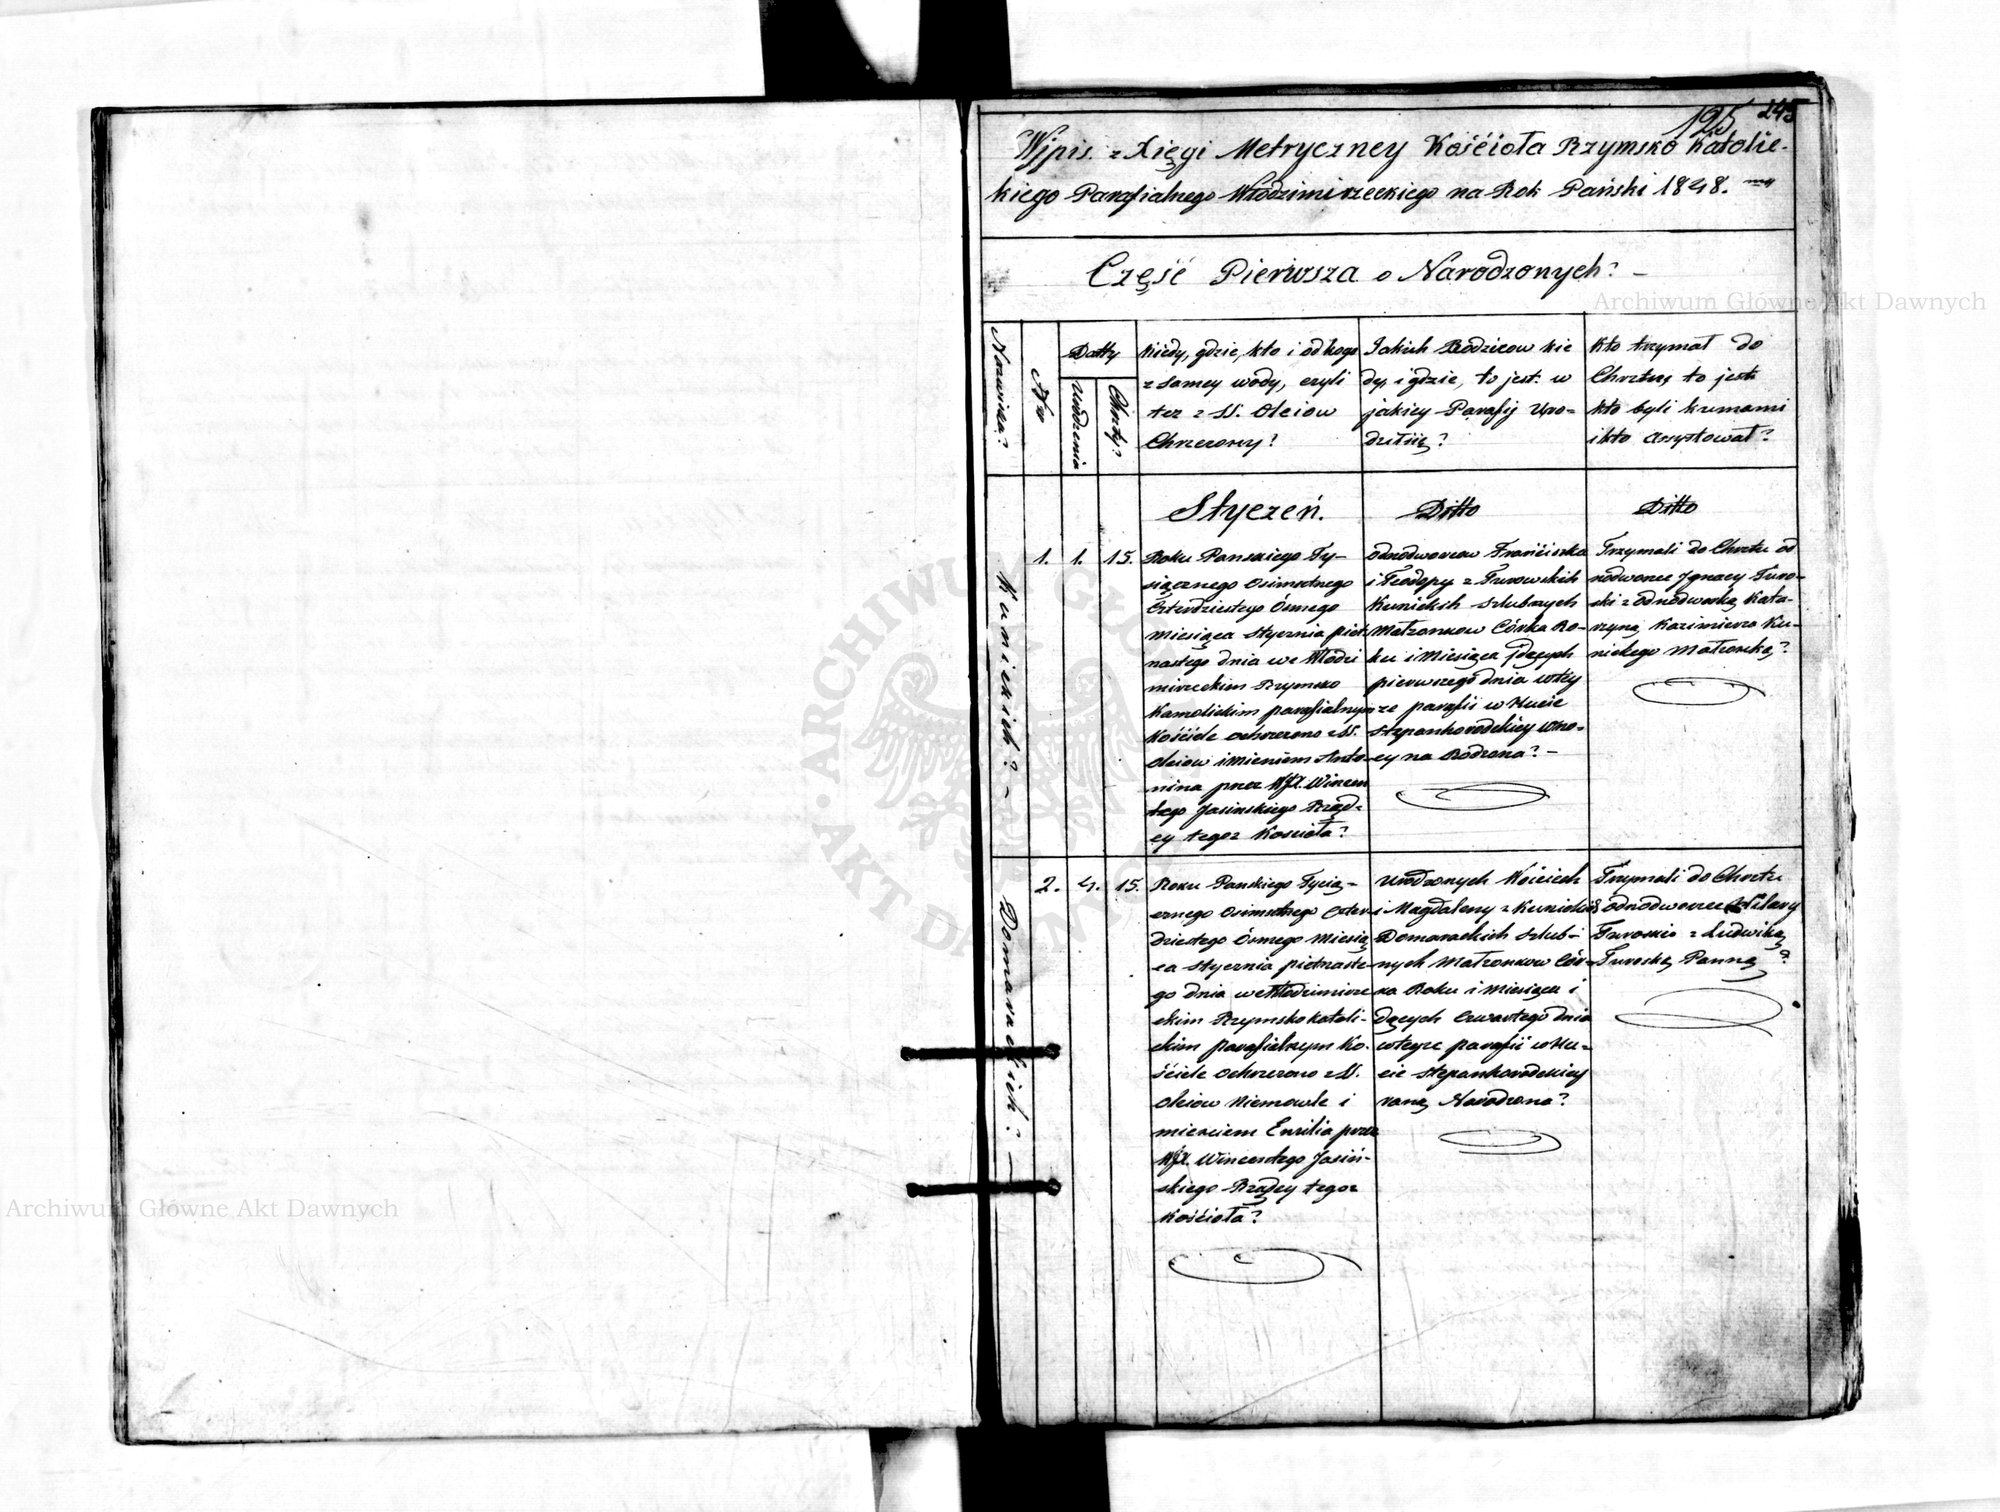 125 245
Wypis z Xięgi Metryczney Kościoła Rzymsko Katolic-
kiego Parafialnego Włodzimirzeckiego na Rok Pański 1848.
Część Pierwsza o Narodzonych?
Nazwiska?
Nr
Datty
Urodzenia
Chrztu?
Kiedy, gdzie, kto i od kogo
z samey wody, czyli
też z SS. Oleiow
Chrzczony?
Jakich Rodzicow kie
dy, i gdzie, to jest: w
jakiey Parafij Uro-
dził się?
Kto trzymał do
Chrztu, to jest
kto byli kumami
i kto assystował?
Styczeń.
Ditto
Ditto
Kunickich? -
1. 1. 15.
Roku Panskiego Ty-
siącznego Osimsetnego
Czterdziestego Ósmego
miesiąca Stycznia piet-
nastego dnia we Włodzi
mirzeckim Rzymsko
Katolickim parafialnym
Kościele ochrzczono z SS.
Oleiow imieniem Anto-
nina przez WJX. Wincen
tego Jasinskiego Rząd-
cy tegoz Kościoła?
Odnodworcow Franciszka
i Teodozy z Turowskich
Kunickich Szlubnych
Małżonkow Córka Ro-
ku i Miesiąca jdących
pierwszego dnia wtey
ze parafii w Hucie
Stepanhorodzkiey wno-
cy na Rodzona? -
Trzymali do Chrztu od
nodworec Ignacy Turo-
ski z odnodworką Kata-
rzyną Kazimierza Ku-
nickego Małżonką?
Domarackich? -
2. 4. 15.
Roku Panskiego Tysią-
cznego Osimsetnego Czter-
dziestego Ósmego Miesią
ca Stycznia pietnaste-
go dnia we Włodzimirze
ckim Rzymsko Katoli-
ckim parafialnym Ko-
ściele Ochrzczono z SS.
Oleiow Niemowle i
mieniem Emilia przez
WJX. Wincentego Jasiń-
skiego Rządcy tegoz
Kościoła?
Urodzonych Woiciech
i Magdaleny z Kunickich
Domarackich Szlub-
nych Małżonkow Cór-
ka Roku i Miesiąca i
dących Czwartego dnia
wteyze parafii w Hu-
cie Stepanhorodzkiey
raną Narodzona?
Trzymali do Chrztu
odnodworec Hilary
Turoski z Ludwiką
Turoską Panną?
Archiwum Główne Akt Dawnych
Archiwum Główne Akt Dawnych
ARCHIWUM GŁÓWNE AKT DAWNYCH